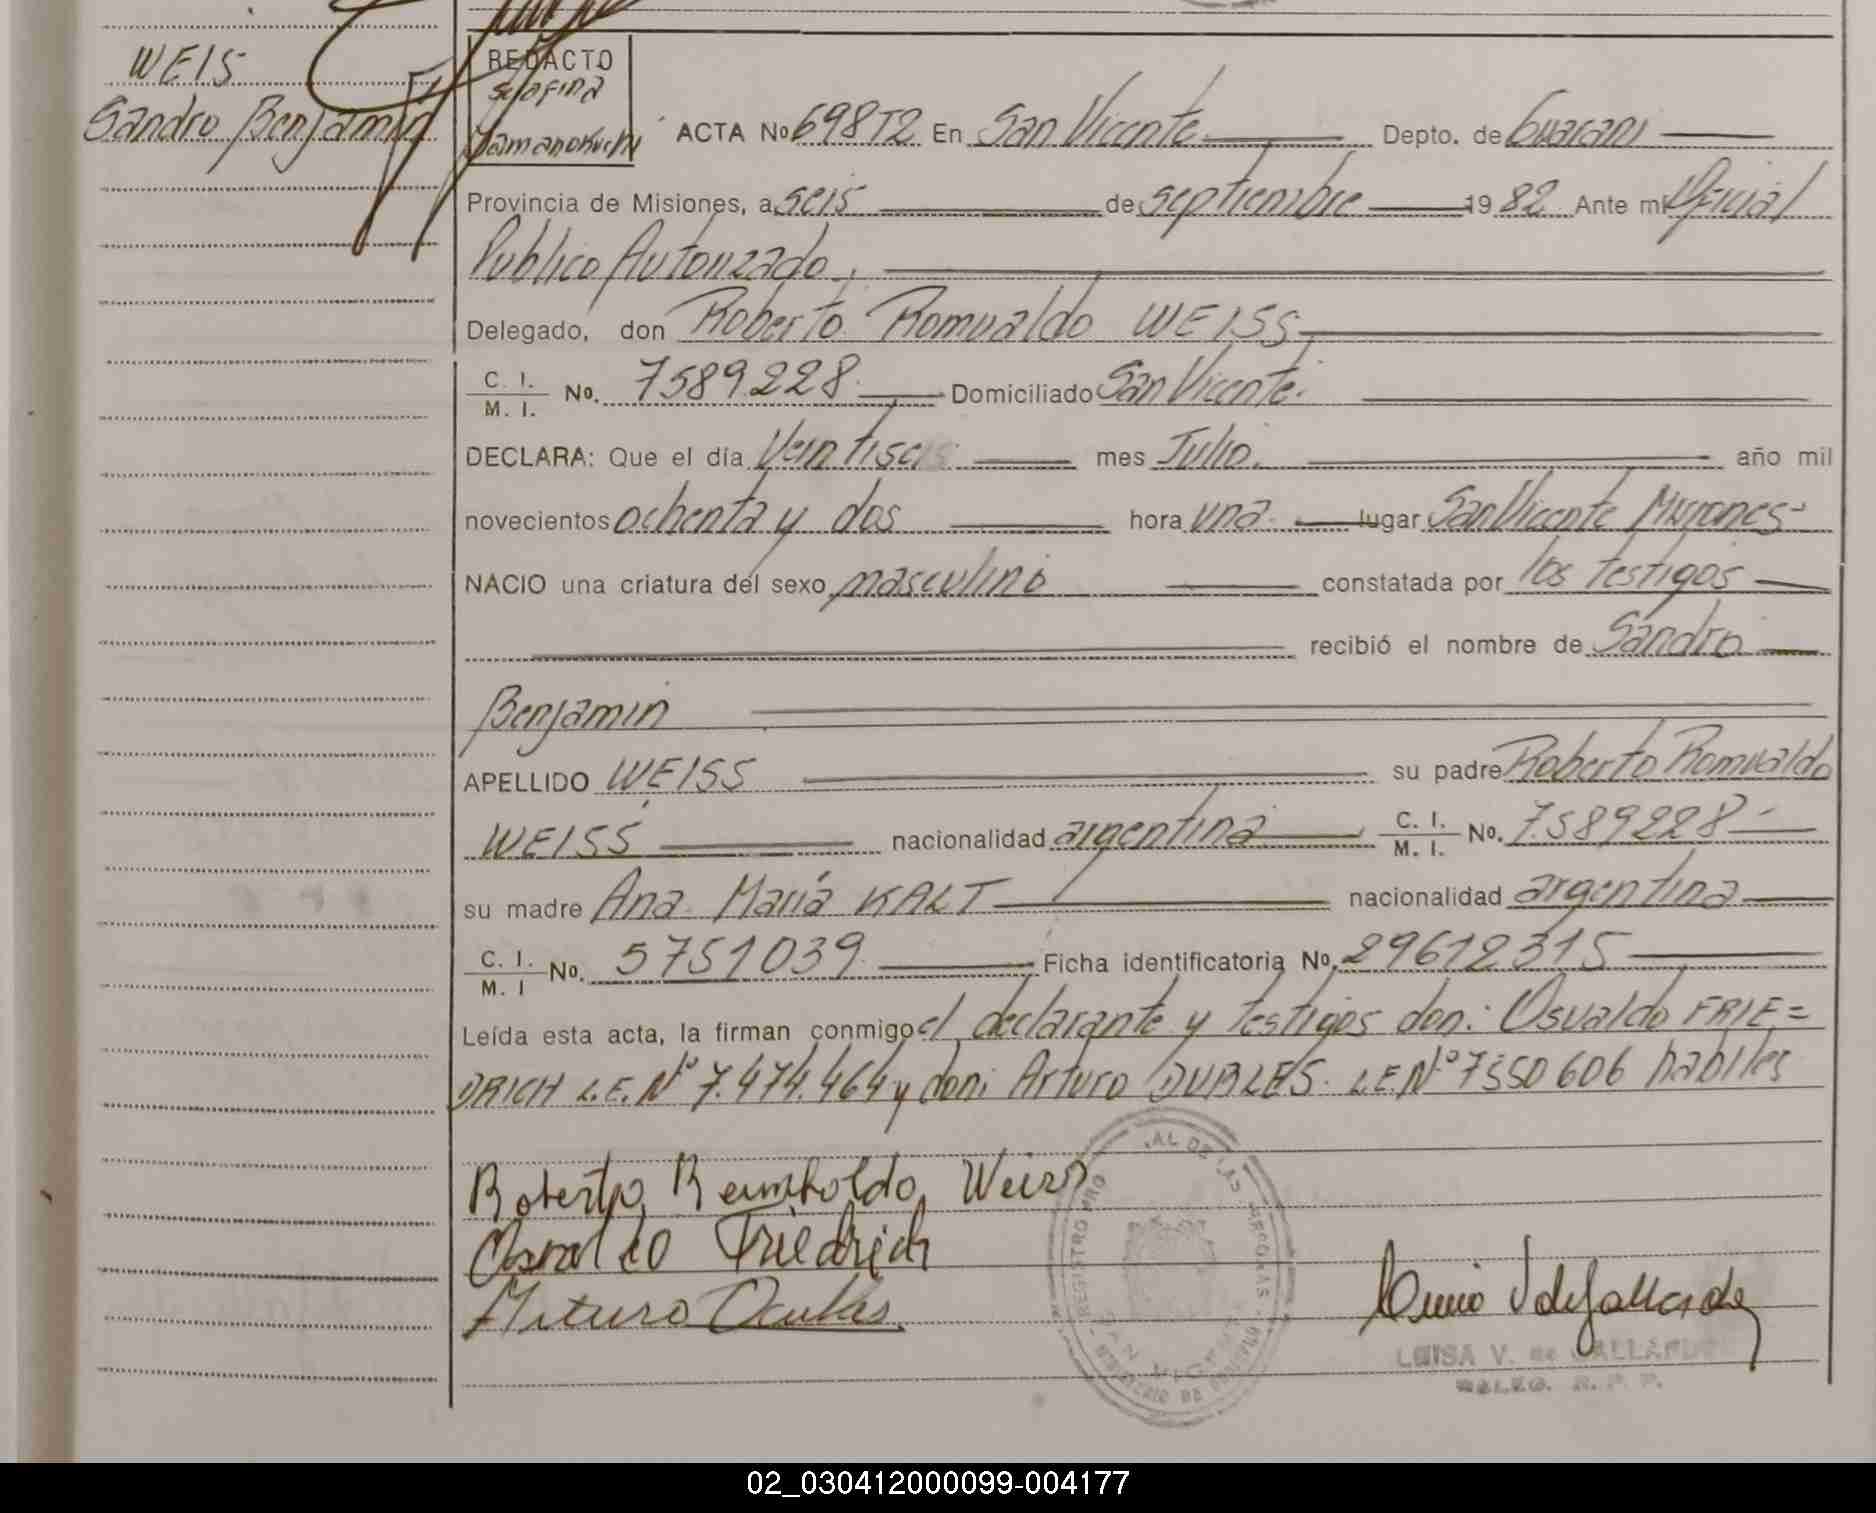 WEIS
Sandro Benjamin
REDACTO
Serafina
Jamanokuchi
ACTA No 698T2 En San Vicente Depto. de Guarani
Provincia de Misiones, a seis de septiembre 1982 Ante mi Oficial
Publico Autorizado,
Delegado, don Roberto Romualdo WEISS
C. I. / M. I. No. 7589228 Domiciliado San Vicente.
DECLARA: Que el día Veintiseis mes Julio. año mil
novecientos ochenta y dos hora una lugar San Vicente Misiones
NACIO una criatura del sexo masculino constatada por los testigos
recibió el nombre de Sandro
Benjamin
APELLIDO WEISS su padre Roberto Romualdo
WEISS nacionalidad argentina C. I. / M. I. No. 7.589228
su madre Ana María KALT nacionalidad argentina
C. I. / M. I No. 5751039 Ficha identificatoria No. 29612315
Leída esta acta, la firman conmigo el declarante y testigos don: Osvaldo FRIE=
DRICH L.E.Nº 7.474.464 y don: Arturo L.E.Nº 7550606 habiles
Roberto Reimholdo Weiss
Osvaldo Friedrich
Arturo
REGISTRO PRO AL DE LAS PERSONAS
SAN VICENTE
MINISTERIO DE GOBIERNO
LUISA V. de GALLARDO
DELEG. R. P. P.
02_030412000099-004177